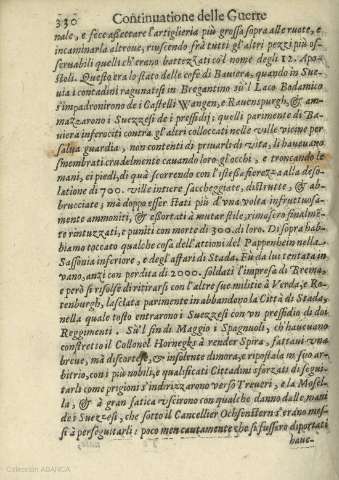 330 Continuatione delle Guerre
nale, e fece assettare l'artiglieria più grossa sopra alle ruote, e
incaminarla altroue, riuscendo frà tutti gl'altri pezzi più os-
seruabili quelli ch'erano battezzati co'l nome degl 12. Apo-
stoli. Questo era lo stato delle cose di Bauiera, quando in Sue-
uia i contadini ragunatisi in Bregantino sù'l Laco Bodamico
s'impadronirono de i Castelli Wangen, e Rauenspurgh, & am-
mazzarono i Suezzesi de i pressidij; quelli parimente di Ba-
uiera inferociti contra gl'altri collocati nelle ville vicine per
salua guardia, non contenti di priuarli di vita, li haueuano
smembrati crudelmente cauando loro gl'occhi, e troncando le
mani, ei piedi, di quà scorrendo con l'istessa fierezza alla deso-
latione di 700. ville intiere saccheggiate, distrutte, & ab-
brucciate; mà doppo esser stati più d'vna volta infruttuosa-
mente ammoniti, & essortati à mutar stile, rimasero finalmē-
te rintuzzati, e puniti con morte di 300. di loro. Di sopra hab-
biamo toccato qualche cosa dell'attioni del Pappenheim nella
Sassonia inferiore, e degl'affari di Stada. Fù da lui tentata in
vano, anzi con perdita di 2000. soldati l'impresa di Brema,
e però si risolse di ritirarsi con l'altre sue militie à Verda, e Ro-
tenburgh, lasciata parimente in abbandono la Città di Stada,
nella quale tosto entrarono i Suezzesi con vn presidio di doi
Reggimenti. Sù'l fin di Maggio i Spagnuoli, c'haueuano
constretto il Collonel Hornegks à render Spira, fattaui vna
breue, mà discortese, & insolente dimora, e ripostala in suo ar-
bitrio, con i più nobili, e qualificati Cittadini sforzati di segui-
tarli come prigioni s'indrizzarono verso Treueri, e la Mosel-
la, & à gran fatica vscirono con qualche danno dalle mani
de i Suezzesi, che sotto il Cancellier Ochsenstern s'erano mes-
si à perseguitarli: e poco men cautamente che si fussero diportati
haue-
Colección ABANCA